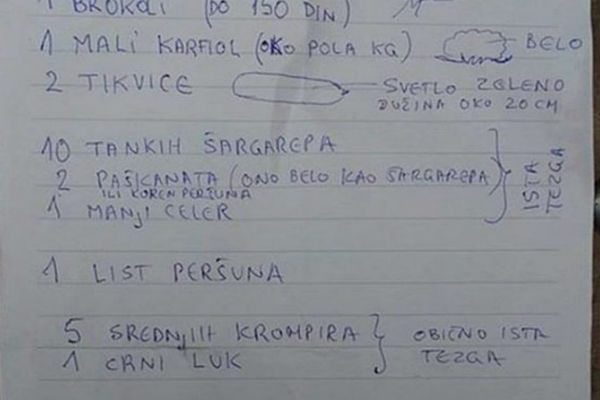 1 BROKOLI (DO 150 DIN)
1 MALI KARFIOL (OKO POLA KG) BELO
2 TIKVICE SVETLO ZELENO
DUŽINA OKO 20 CM
10 TANKIH ŠARGAREPA
2 PAŠKANATA (ONO BELO KAO ŠARGAREPA)
ILI KOREN PERŠUNA
1 MANJI CELER
ISTA
TEZGA
1 LIST PERŠUNA
5 SREDNJIH KROMPIRA OBIČNO ISTA
1 CRNI LUK TEZGA